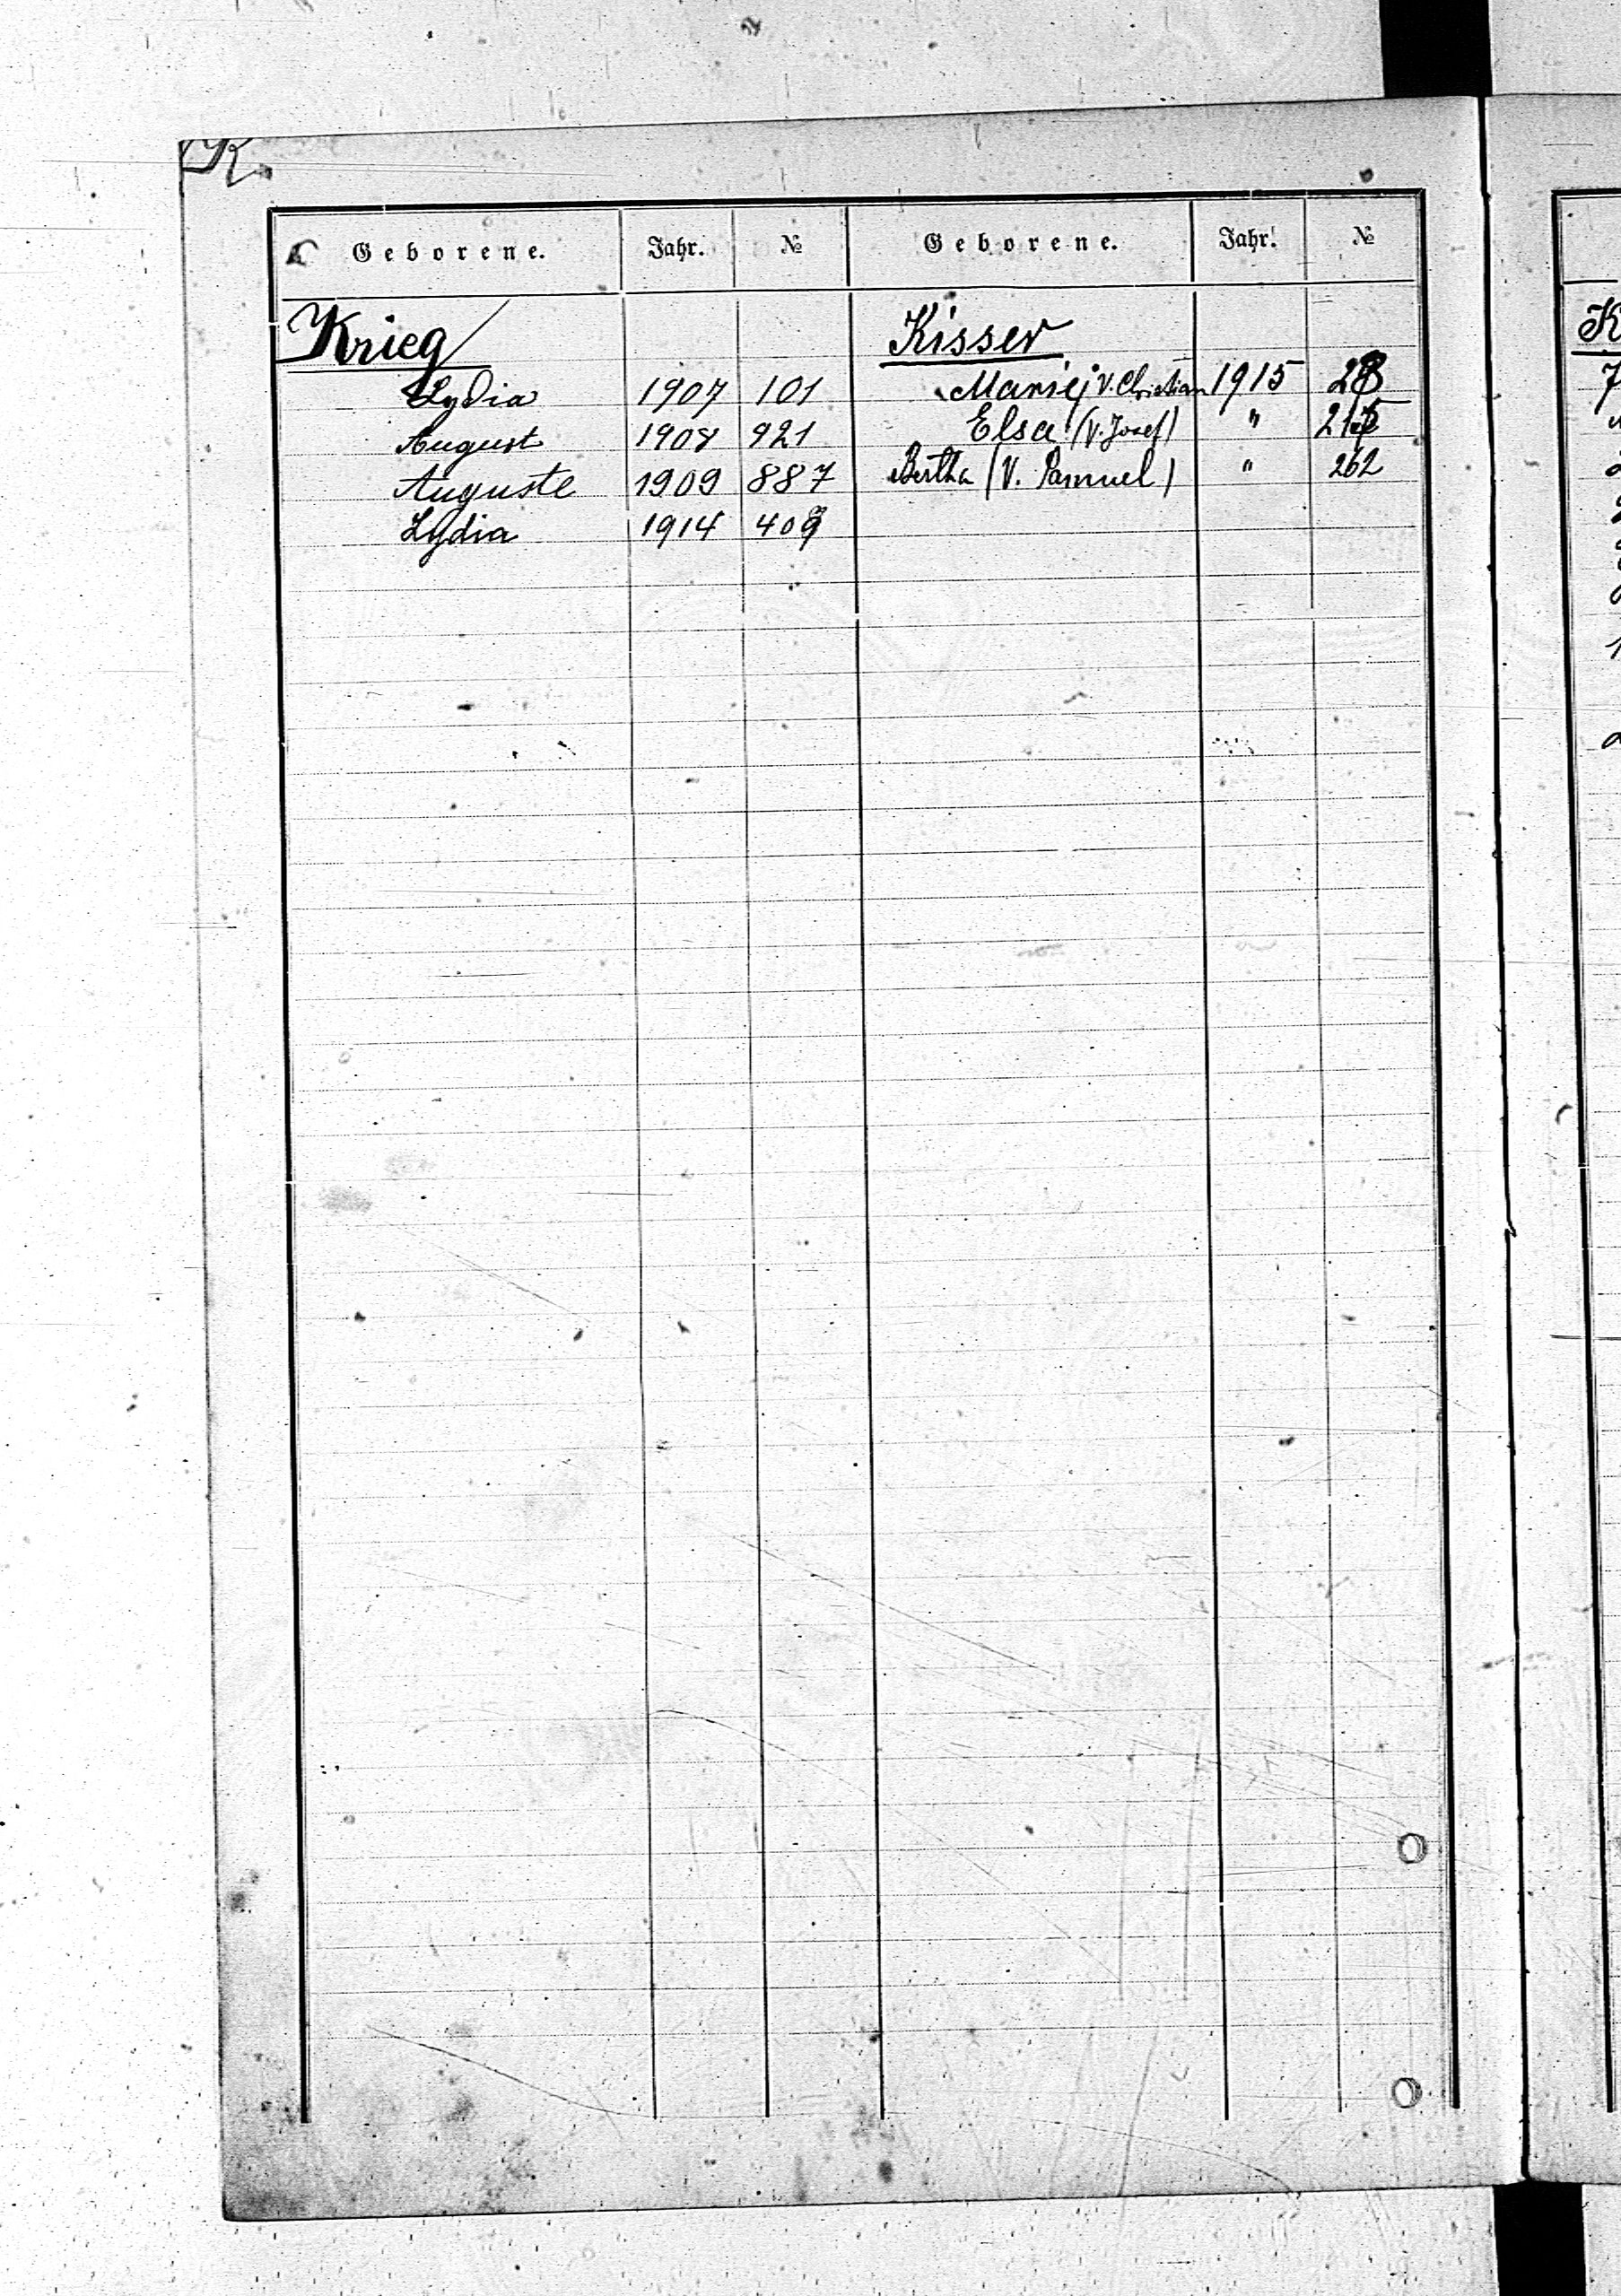 K.
Geborene. Jahr. № Geborene. Jahr. №
Krieg
Lydia 1907 101
August 1908 921
Auguste 1909 887
Lydia 1914 409
Kisser
Marie V. Christian 1915 28
Elsa (V. Josef) " 215
Bertha (V. Samuel) " 262